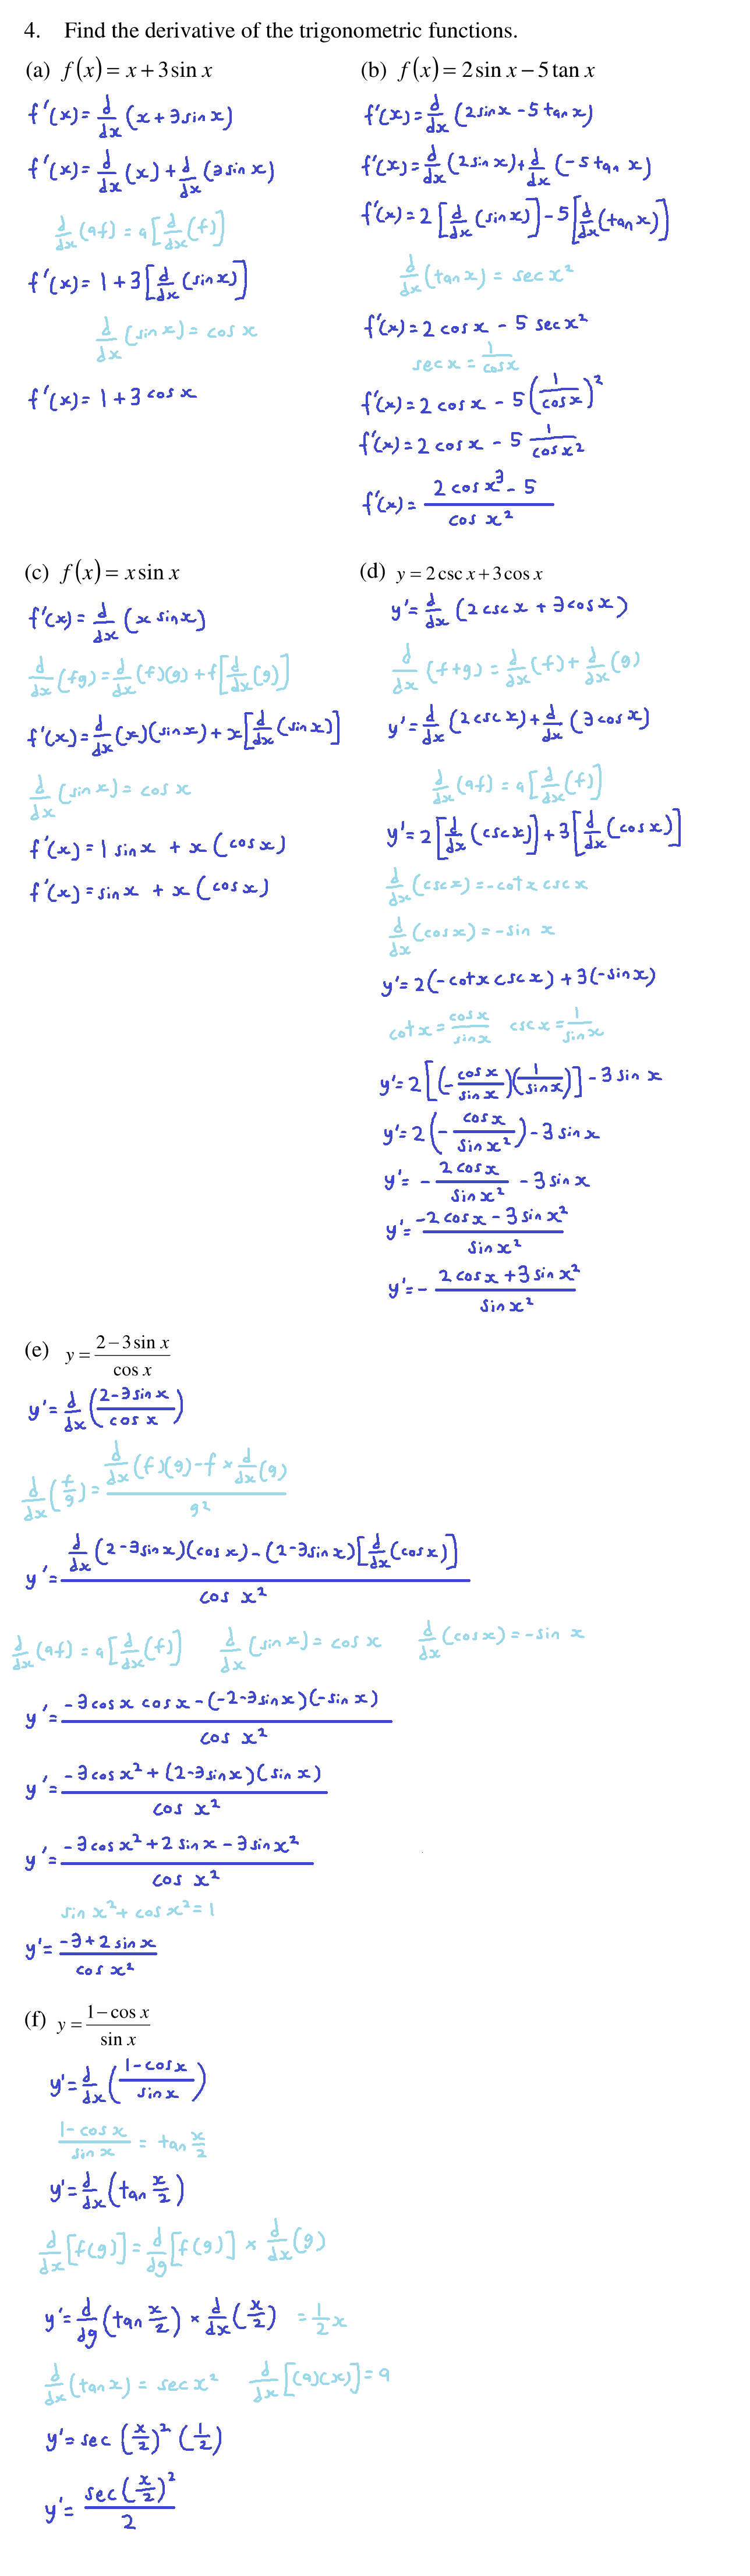 4. Find the derivative of the trigonometric functions.
(a) f(x) = x + 3 sin x
f'(x) = d/dx (x + 3 sin x)
f'(x) = d/dx (x) + d/dx (3 sin x)
d/dx (af) = a[d/dx (f)]
f'(x) = 1 + 3[d/dx (sin x)]
d/dx (sin x) = cos x
f'(x) = 1 + 3 cos x
(b) f(x) = 2 sin x − 5 tan x
f'(x) = d/dx (2 sin x − 5 tan x)
f'(x) = d/dx (2 sin x) + d/dx (−5 tan x)
f'(x) = 2[d/dx (sin x)] − 5[d/dx (tan x)]
d/dx (tan x) = sec x²
f'(x) = 2 cos x − 5 sec x²
sec x = 1/cos x
f'(x) = 2 cos x − 5 (1/cos x)²
f'(x) = 2 cos x − 5 1/cos x²
f'(x) = (2 cos x³ − 5)/cos x²
(c) f(x) = x sin x
f'(x) = d/dx (x sin x)
d/dx (fg) = d/dx (f)(g) + f[d/dx (g)]
f'(x) = d/dx (x)(sin x) + x[d/dx (sin x)]
d/dx (sin x) = cos x
f'(x) = 1 sin x + x (cos x)
f'(x) = sin x + x (cos x)
(d) y = 2 csc x + 3 cos x
y' = d/dx (2 csc x + 3 cos x)
d/dx (f + g) = d/dx (f) + d/dx (g)
y' = d/dx (2 csc x) + d/dx (3 cos x)
d/dx (af) = a[d/dx (f)]
y' = 2[d/dx (csc x)] + 3[d/dx (cos x)]
d/dx (csc x) = −cot x csc x
d/dx (cos x) = −sin x
y' = 2(−cot x csc x) + 3(−sin x)
cot x = cos x/sin x csc x = 1/sin x
y' = 2[(−cos x/sin x)(1/sin x)] − 3 sin x
y' = 2(−cos x/sin x²) − 3 sin x
y' = −2 cos x/sin x² − 3 sin x
y' = (−2 cos x − 3 sin x²)/sin x²
y' = −(2 cos x + 3 sin x²)/sin x²
(e) y = (2 − 3 sin x)/cos x
y' = d/dx ((2 − 3 sin x)/cos x)
d/dx (f/g) = (d/dx (f)(g) − f × d/dx (g))/g²
y' = (d/dx (2 − 3 sin x)(cos x) − (2 − 3 sin x)[d/dx (cos x)])/cos x²
d/dx (af) = a[d/dx (f)] d/dx (sin x) = cos x d/dx (cos x) = −sin x
y' = (−3 cos x cos x − (−2 − 3 sin x)(−sin x))/cos x²
y' = (−3 cos x² + (2 − 3 sin x)(sin x))/cos x²
y' = (−3 cos x² + 2 sin x − 3 sin x²)/cos x²
sin x² + cos x² = 1
y' = (−3 + 2 sin x)/cos x²
(f) y = (1 − cos x)/sin x
y' = d/dx ((1 − cos x)/sin x)
(1 − cos x)/sin x = tan x/2
y' = d/dx (tan x/2)
d/dx [f(g)] = d/dg [f(g)] × d/dx (g)
y' = d/dg (tan x/2) × d/dx (x/2) = 1/2 x
d/dx (tan x) = sec x² d/dx [(a)(x)] = a
y' = sec (x/2)² (1/2)
y' = sec (x/2)²/2